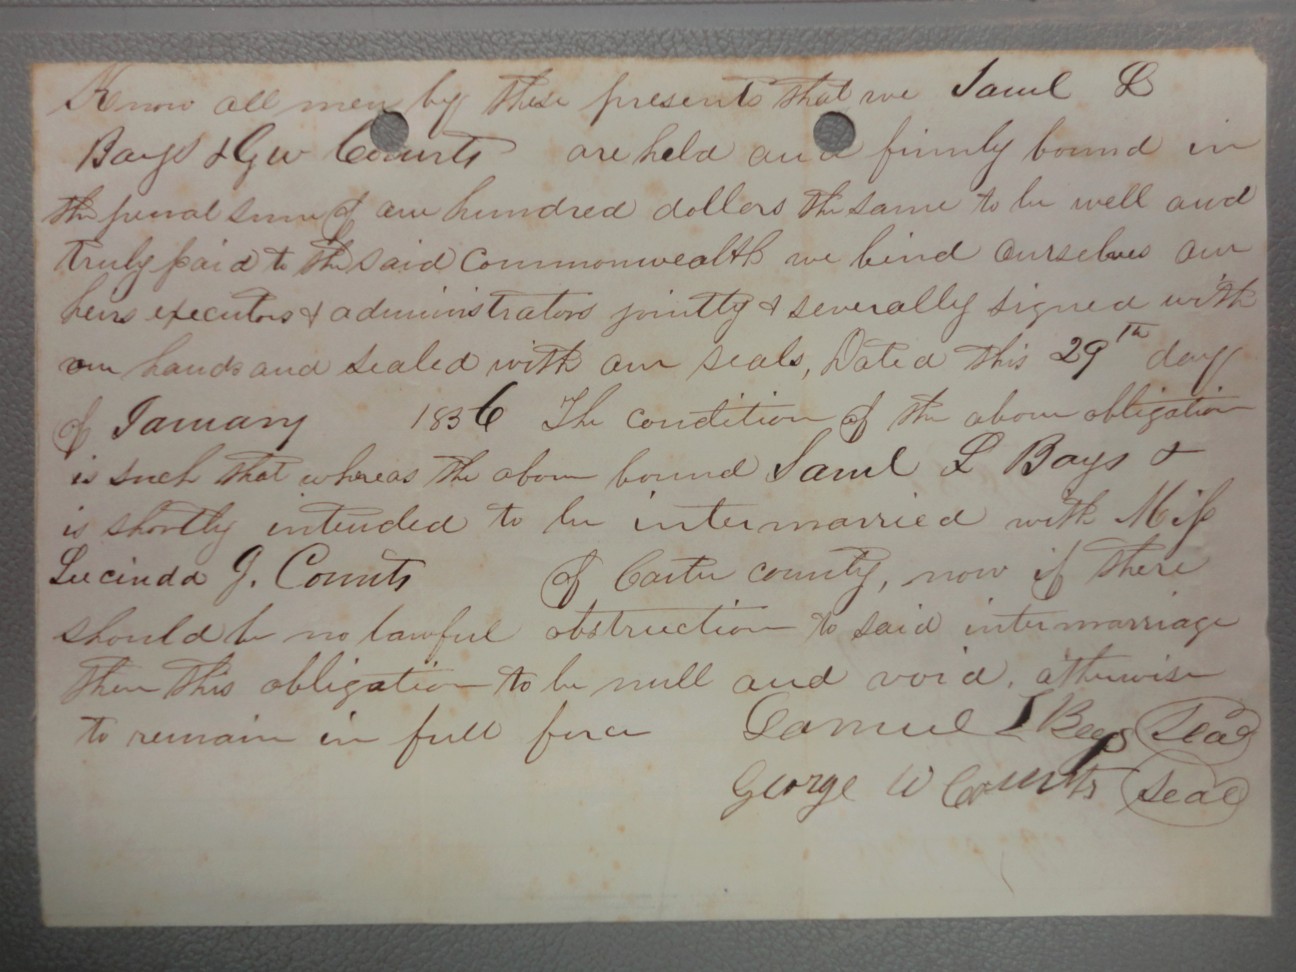 Know all men by these presents that we Saml L
Bays & G W Counts are held and firmly bound in
the penal sum of one hundred dollars the same to be well and
truly paid to the said commonwealth we bind ourselves our
heirs executors & administrators jointly & severally signed with
our hands and sealed with our seals, Dated this 29th day
of January 1836 The condition of the above obligation
is such that whereas the above bound Saml L Bays &
is shortly intended to be intermarried with Miss
Lucinda J. Counts of Carter county, now if there
should be no lawful obstruction to said intermarriage
then this obligation to be null and void, otherwise
to remain in full force Samuel L Bays Seal
George W Counts Seal